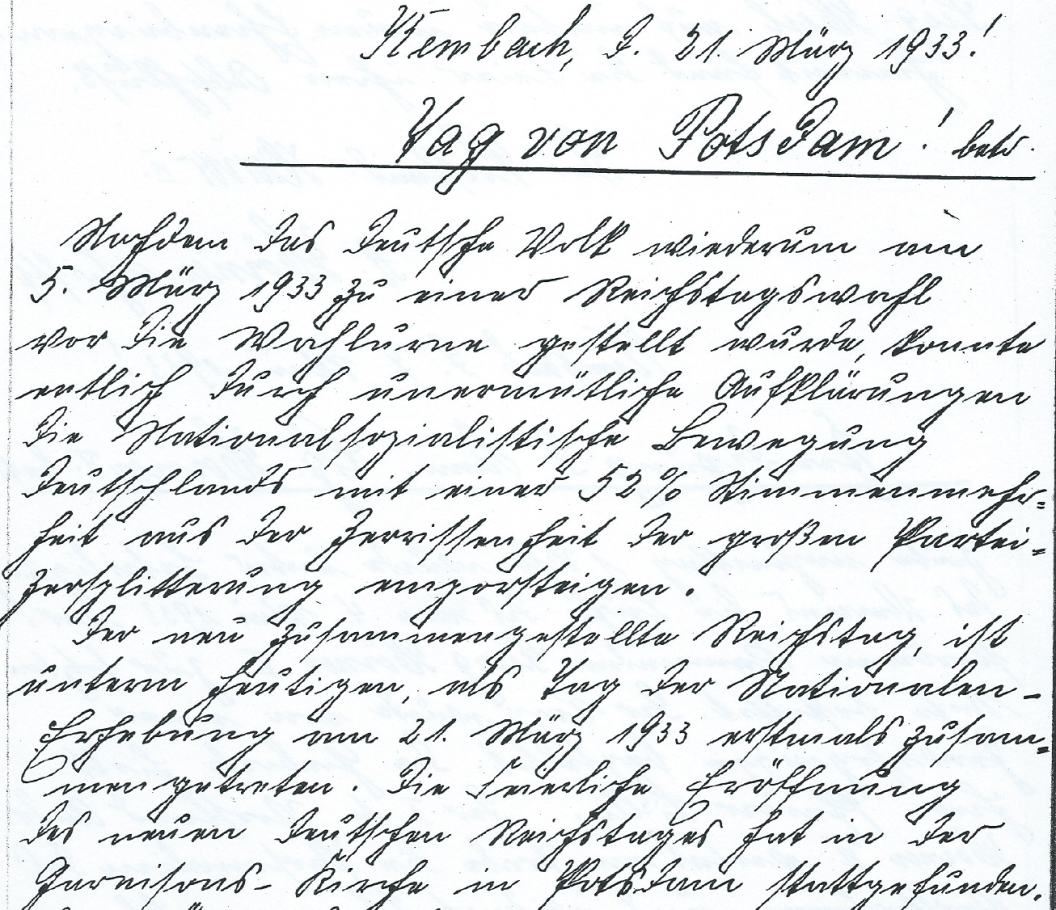 Kembach, d. 21. März 1933!
Tag von Potsdam! betr.
Nachdem das deutsche Volk wiederum am
5. März 1933 zu einer Reichstagswahl
vor die Wahlurne gestellt wurde, konnte
entlich durch unermütliche Aufklärungen
die Nationalsozialistische Bewegung
Deutschlands mit einer 52% Stimmenmehr=
heit aus der Zerrissenheit der großen Partei=
zersplitterung emporsteigen.
Der neu zusammengestellte Reichstag, ist
unterm heutigen als Tag der Nationalen-
Erhebung am 21. März 1933 erstmals zusam=
mengetreten. Die Feierliche Eröffnung
des neuen deutschen Reichstages hat in der
Garnisons-Kirche in Potsdam stattgefunden.